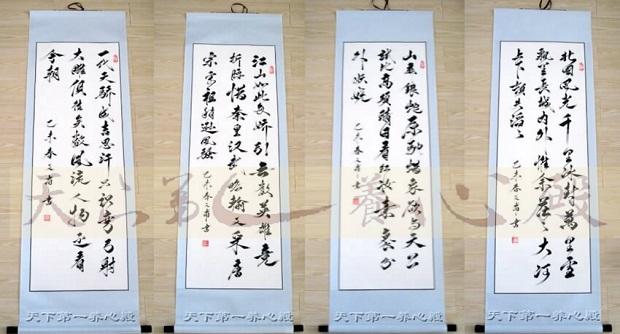 北国风光千里冰封万里雪
飘望长城内外惟余莽莽大河
上下顿失滔滔
己未春 书
山舞银蛇原驰蜡象欲与天公
试比高须晴日看红妆素裹分
外妖娆
己未春 书
江山如此多娇引无数英雄竞
折腰惜秦皇汉武略输文采唐
宋宗祖稍逊风骚
己未春 书
一代天骄成吉思汗只识弯弓射
大雕俱往矣数风流人物还看
今朝
己未春 书
天下第一养心殿
天下第一养心殿
天下第一养心殿
天下第一养心殿
天下第一養心殿